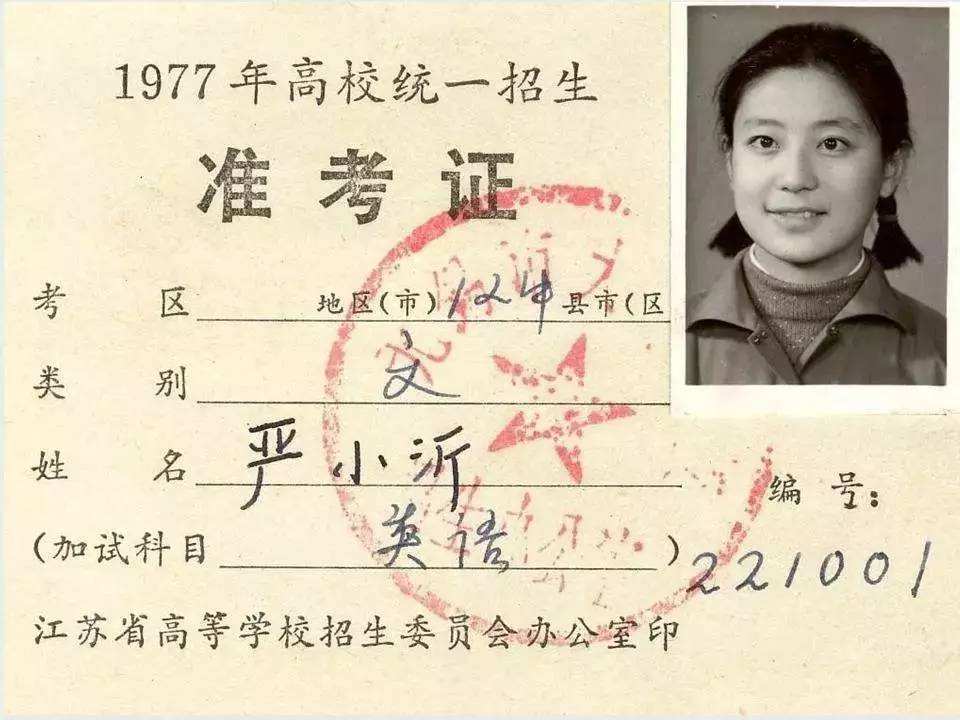 1977年高校统一招生
准考证
考 区 地区(市) 县市(区
类 别 文
姓 名 严小沂
(加试科目 英语)
编号:
221001
江苏省高等学校招生委员会办公室印